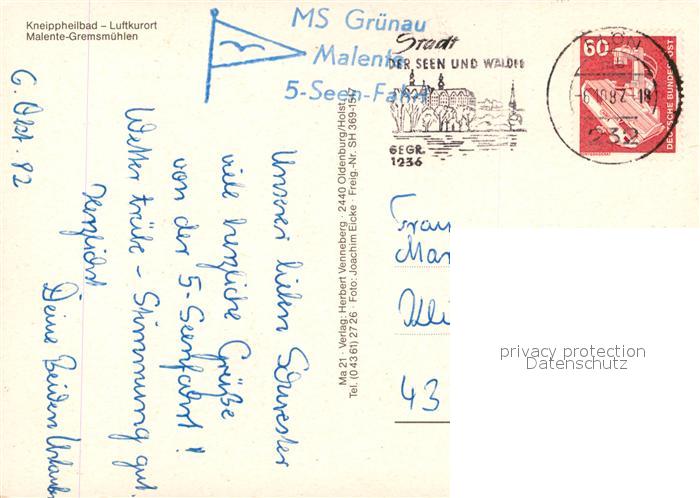 Kneippheilbad – Luftkurort
Malente-Gremsmühlen
MS Grünau
Malente
5-Seen-Fahrt
Stadt
DER SEEN UND WÄLDER
GEGR.
1236
6.10.82-18
232
60
DEUTSCHE BUNDESPOST
6. Okt. 82
Unserer lieben Schwester
viele herzliche Grüße
von der 5-Seenfahrt!
Wetter trübe - Stimmung gut.
Herzlichst
Deine Beiden Urlauber
Ma 21 · Verlag: Herbert Venneberg · 2440 Oldenburg/Holst.
Tel. (0 43 61) 27 26 · Foto: Joachim Eicke · Freig.-Nr. SH 369-15/7
Frau
Mar
43
privacy protection
Datenschutz